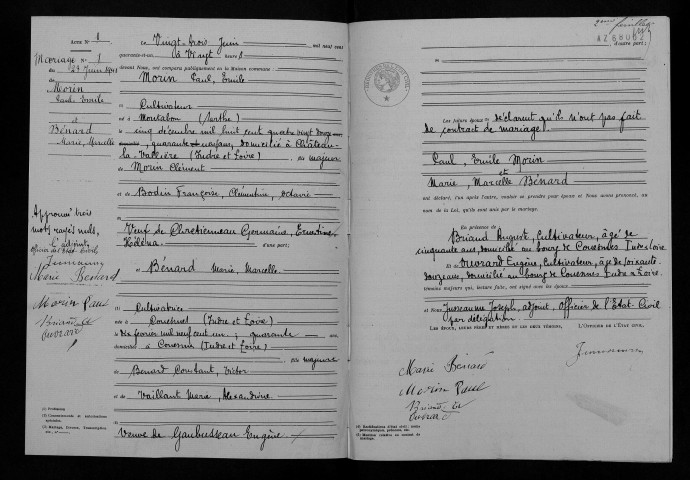 Acte N° 1
Mariage N° 1
du 23 Juin 1941
de
Morin
Paul Emile
et
Bénard
Marie, Marcelle
Approuvé trois
mots rayés nuls,
L'adjoint,
Officier de l'Etat-Civil,
Marie Bénard
Morin Paul
Briand A
Ouvrard
(1) Profession
Le Vingt-trois Juin mil neuf cent
quarante-et-un à Vingt heures
devant Nous, ont comparu publiquement en la Maison commune
Morin Paul, Emile
(1) Cultivateur
né à Montabon (Sarthe)
le cinq décembre mil huit cent quatre vingt
, quarante ans, domicilié à Château-
la-Vallière (Indre et Loire) fils majeur
de Morin Clément
et de Bodin Françoise, Clémentine, Octavie
Veuf de Chrétienneau Germaine, Ernestine,
d'une part;
et Bénard Marie, Marcelle
(1) Cultivatrice
née à Couesmes (Indre et Loire)
le dix février mil neuf cent un ; quarante ans,
domiciliée à Couesmes (Indre et Loire)
fille majeure
de Bénard Constant, Victor
et de Vaillant Marie, Alexandrine
Veuve de Eugène
2ème feuillet
AZ68002
d'autre part;
Les futurs époux déclarent qu'ils n'ont pas fait
de contrat de mariage.
Paul, Emile Morin
et
Marie, Marcelle Bénard
ont déclaré, l'un après l'autre, vouloir se prendre pour époux et Nous avons prononcé, au
nom de la Loi, qu'ils sont unis par le mariage.
En présence de
Briand August, Cultivateur, âgé de
cinquante ans, domicilié au bourg de Couesmes Indre et Loire
Et de Ouvrard Eugène, Cultivateur, âgé de soixante-
douze ans, domicilié au bourg de Couesmes Indre et Loire.
témoins majeurs qui, lecture faite, ont signé avec les époux
et Nous Jusseaume Joseph, adjoint, Officier de l'Etat-Civil
par délégation.
Les époux, leurs pères et mères et les deux témoins, L'Officier de l'état civil,
Marie Bénard
Morin Paul
Briand A
Ouvrard